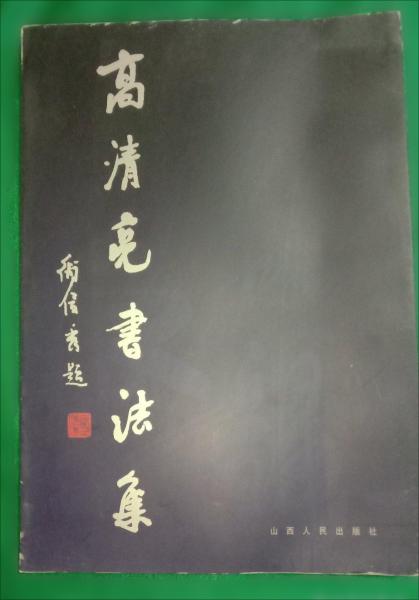 高清亮書法集
衛俊秀題
山西人民出版社